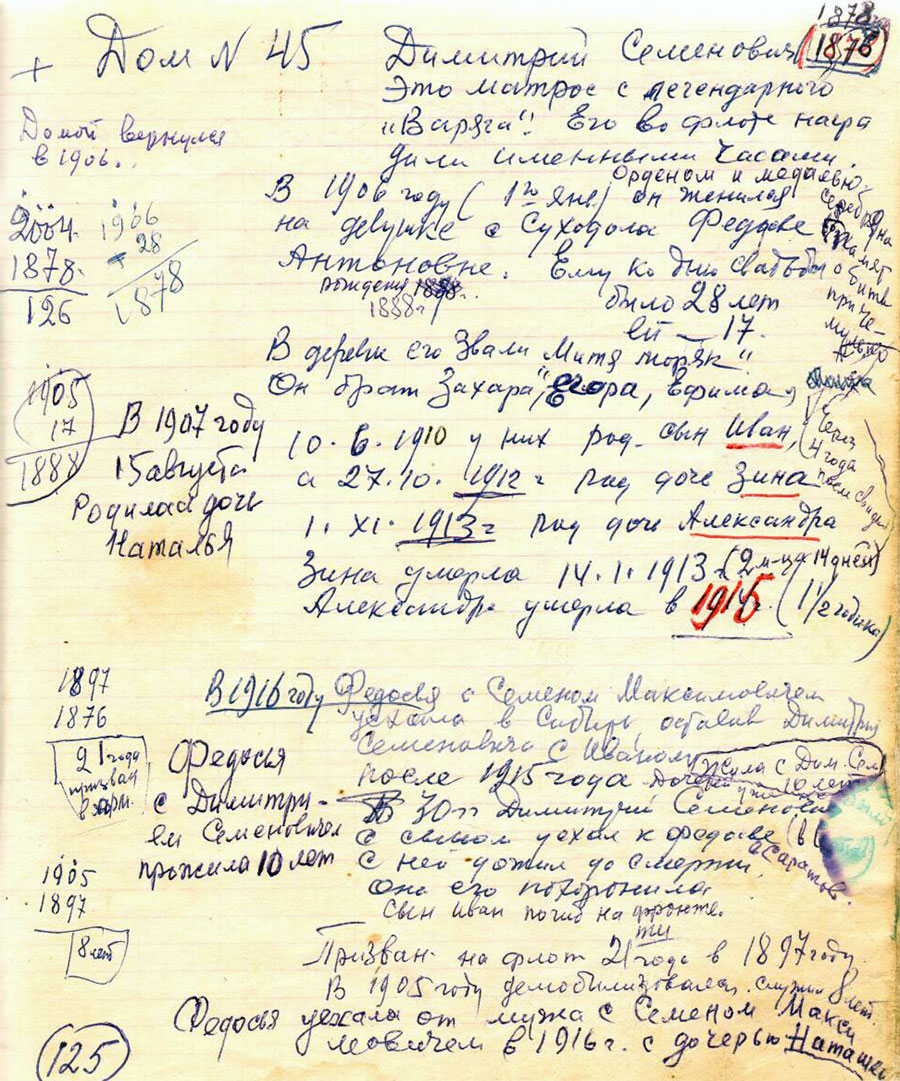 1878
+ Дом N 45 Димитрий Семенович 1876
Это матрос с легендарного
Домой вернулся
в 1906.
"Варяга". Его во флоте награ
дили именными часами.
Орденом и медалью
серебряна
В 1906 году (1го янв.) он женился
на девушке с Суходола Федосье
память
о битве
при Че-
мульпо
Антоновне. Ему ко дню свадьбы
рождения 1888
1888 г.
было 28 лет
ей — 17.
2004.
1878.
126
1906
28
1878
В деревне его звали "Митя моряк"
Он брат Захара, Егора, Ефима,
1905
17
1888
В 1907 году
15 августа
Родилась дочь
Наталья
10.6.1910 у них род. сын Иван,
(Через
4 года
после свадьбы
а 27.10. 1912 г род доче Зина
1. XI. 1913 г род доче Александра
Зина умерла 14.1.1913 (2 м-ца 14 дней)
Александра умерла в 1915 г. (1 1/2 годика)
1897
1876
21 года
призван
в арм.
В 1916 году Федосья с Семеном Максимовичем
уехала в Сибирь, оставив Димитрия
Семеновича с Иваном
Федосья
с Димитри-
ем Семеновичем
прожила 10 лет
жила с Дим. Сем.
10 лет
после 1915 года
В 30 гг Димитрий Семенович
с сыном уехал к Федосье (в
г Саратов.
с ней дожил до смерти
Она его похоронила
сын Иван погиб на фронте.
1905
1897
8 лет
Призван на флот 21 года в 1897 году.
ти
В 1905 году демобилизовался. служил 8 лет.
Федосья уехала от мужа с Семеном Макси
мовичем в 1916 г. с дочерью Наташей
125